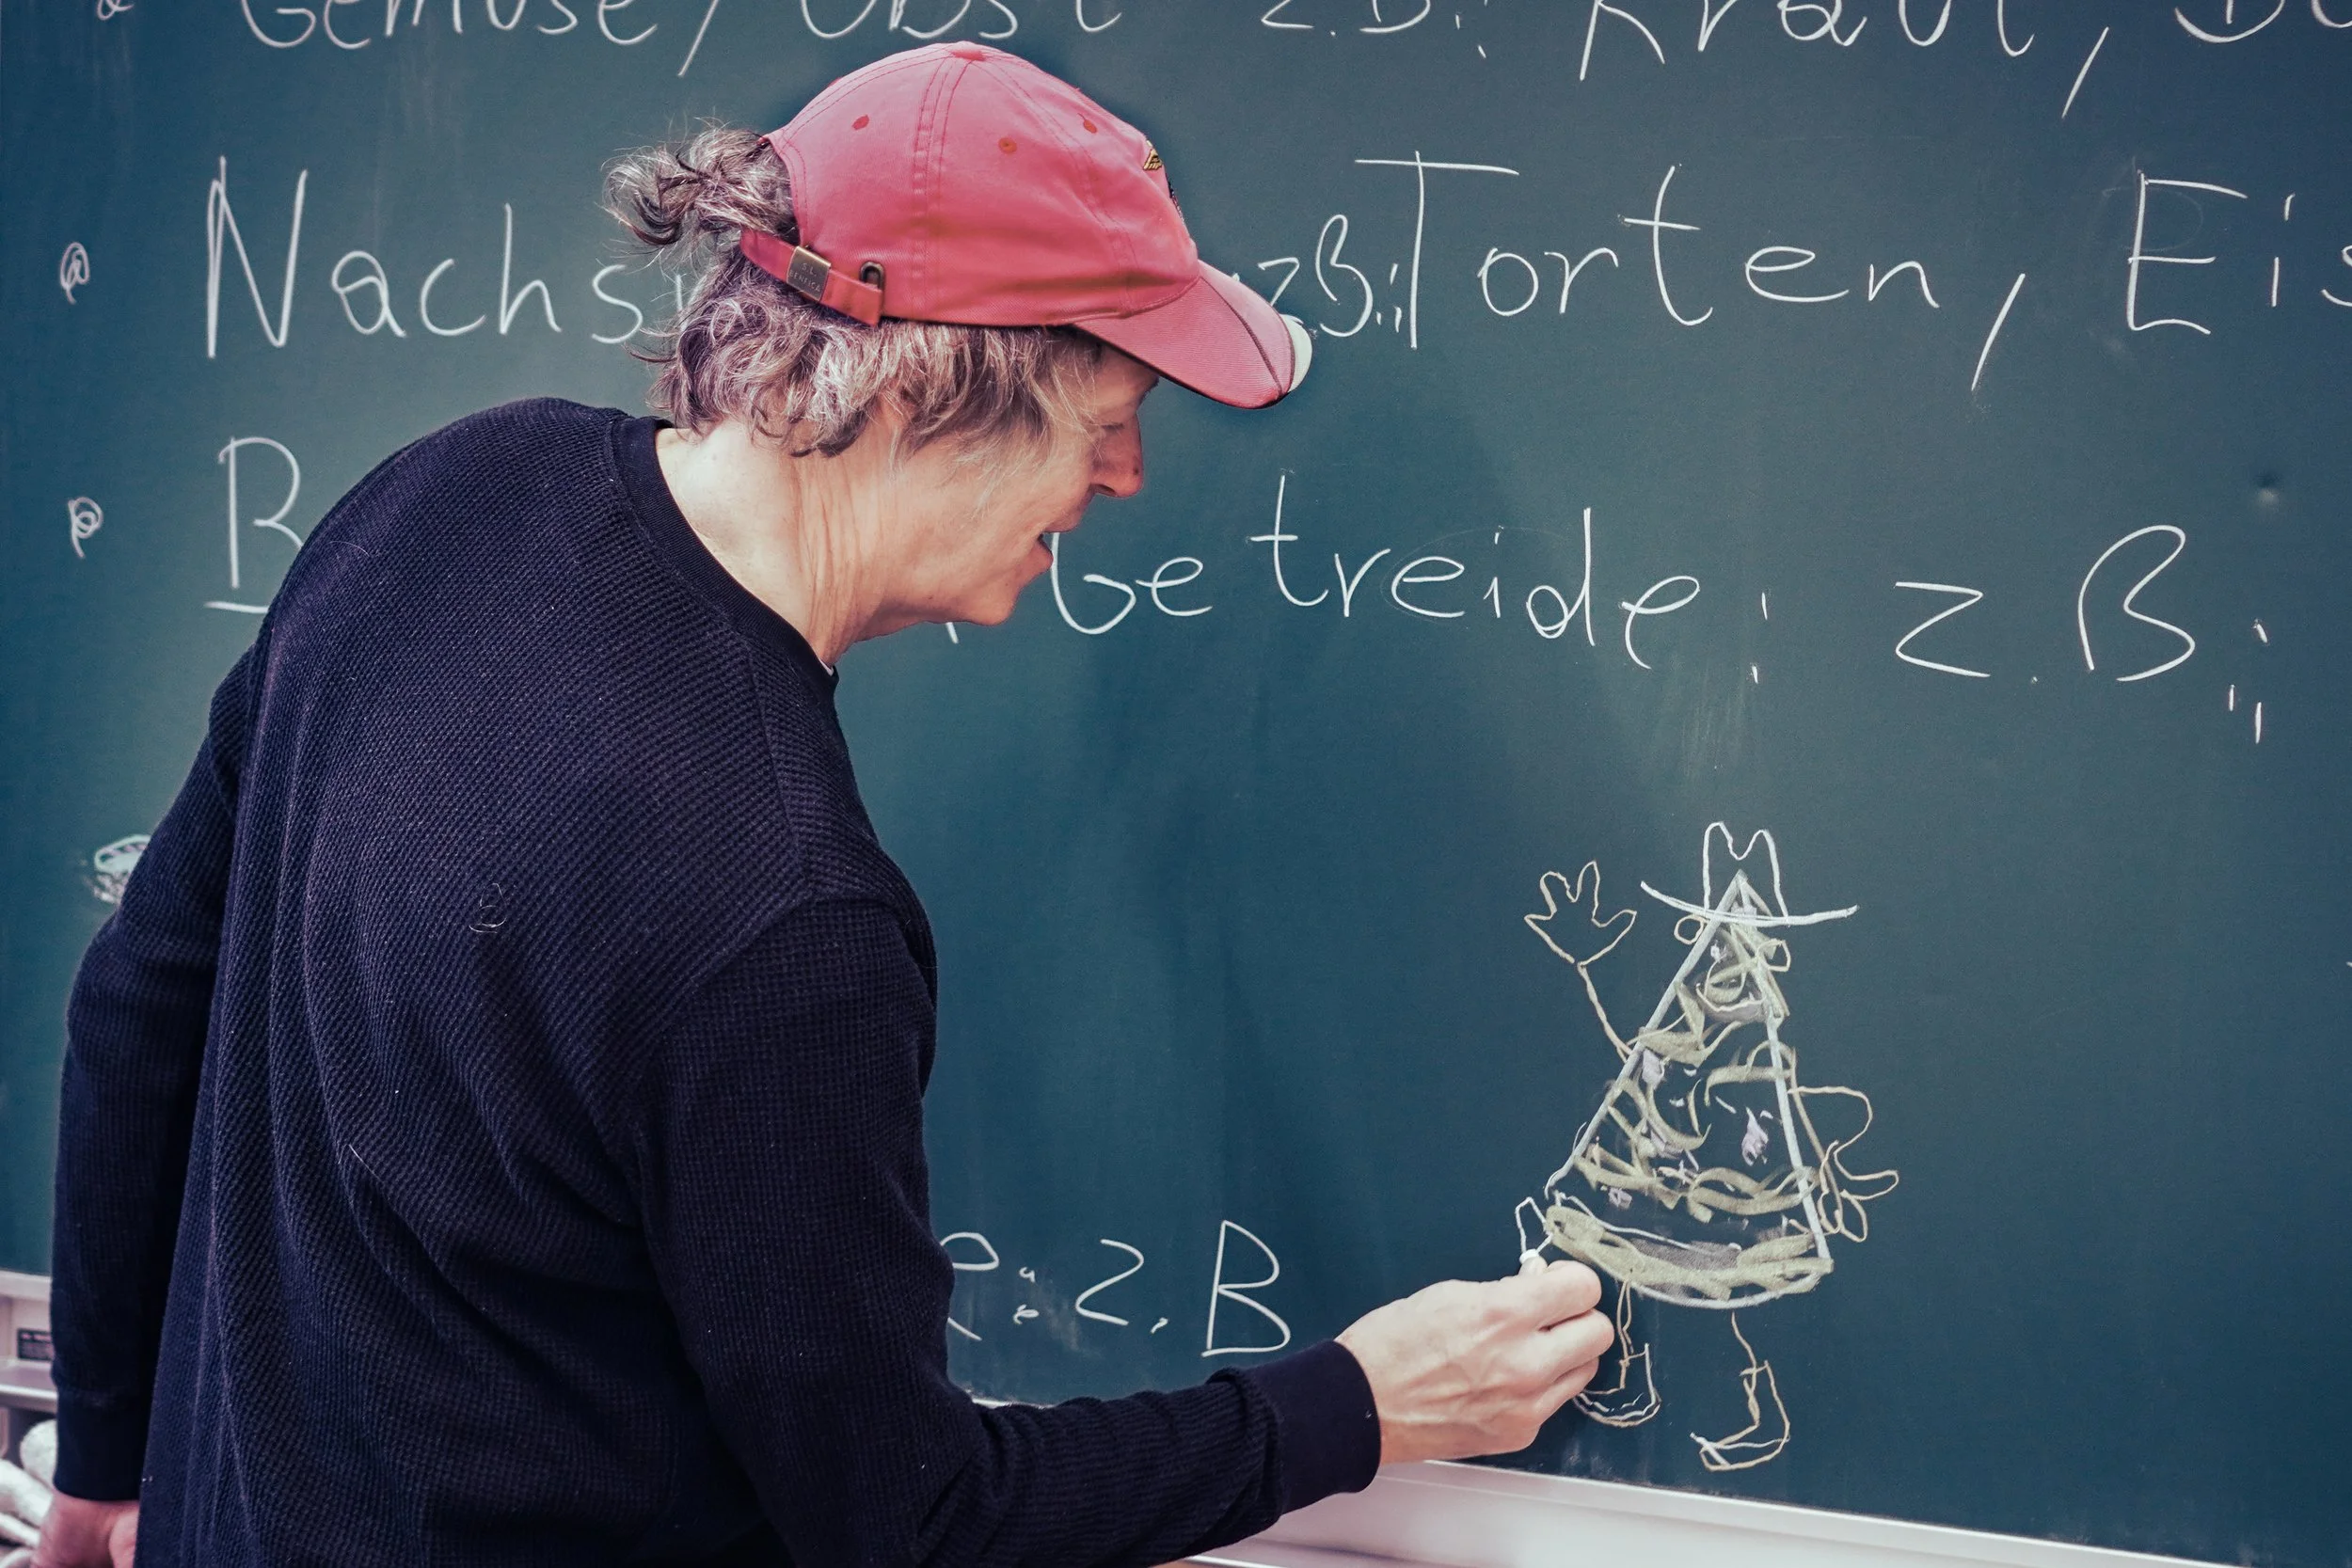 Gemüse/Obst z.B.: Kraut,
Nachs z.B.: Torten, Eis
B Getreide: z.B.:
e: z.B